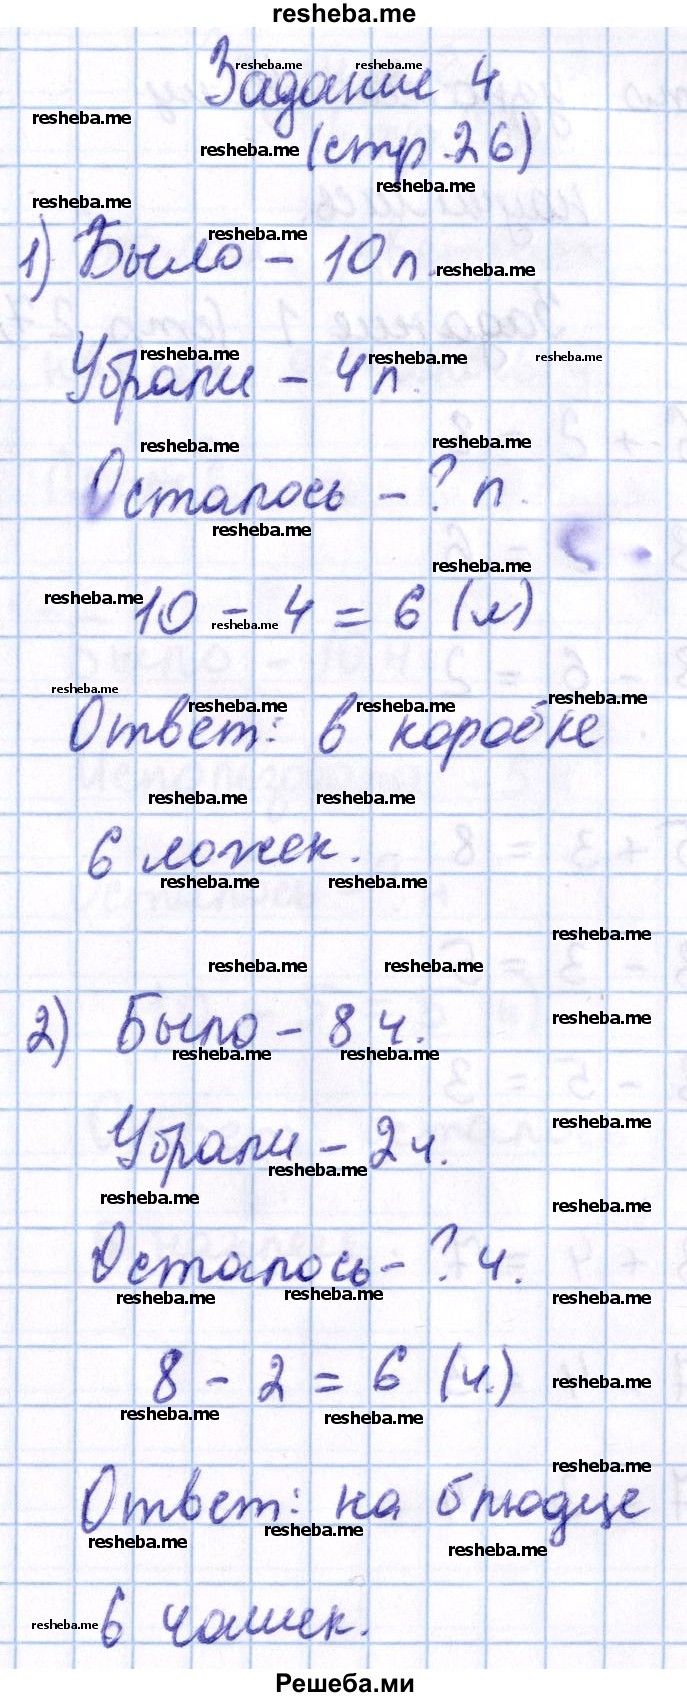 resheba.me
Задание 4
(стр. 26)
1) Было - 10 л.
Убрали - 4 л.
Осталось - ? л.
10 - 4 = 6 (л)
Ответ: в коробке
6 ложек.
2) Было - 8 ч.
Убрали - 2 ч.
Осталось - ? ч.
8 - 2 = 6 (ч.)
Ответ: на блюдце
6 чашек.
Решеба.ми